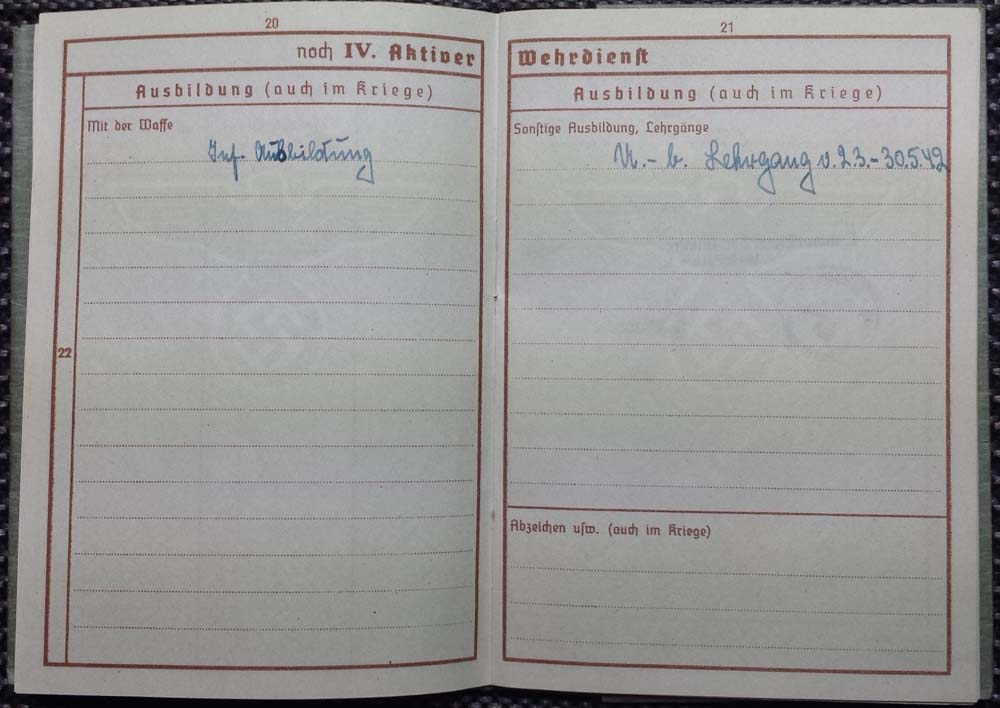 20
noch IV. Aktiver
Ausbildung (auch im Kriege)
Mit der Waffe
Inf. Ausbildung
22
21
Wehrdienst
Ausbildung (auch im Kriege)
Sonstige Ausbildung, Lehrgänge
U.- b. Lehrgang v. 2.3.-30.5.42
Abzeichen usw. (auch im Kriege)